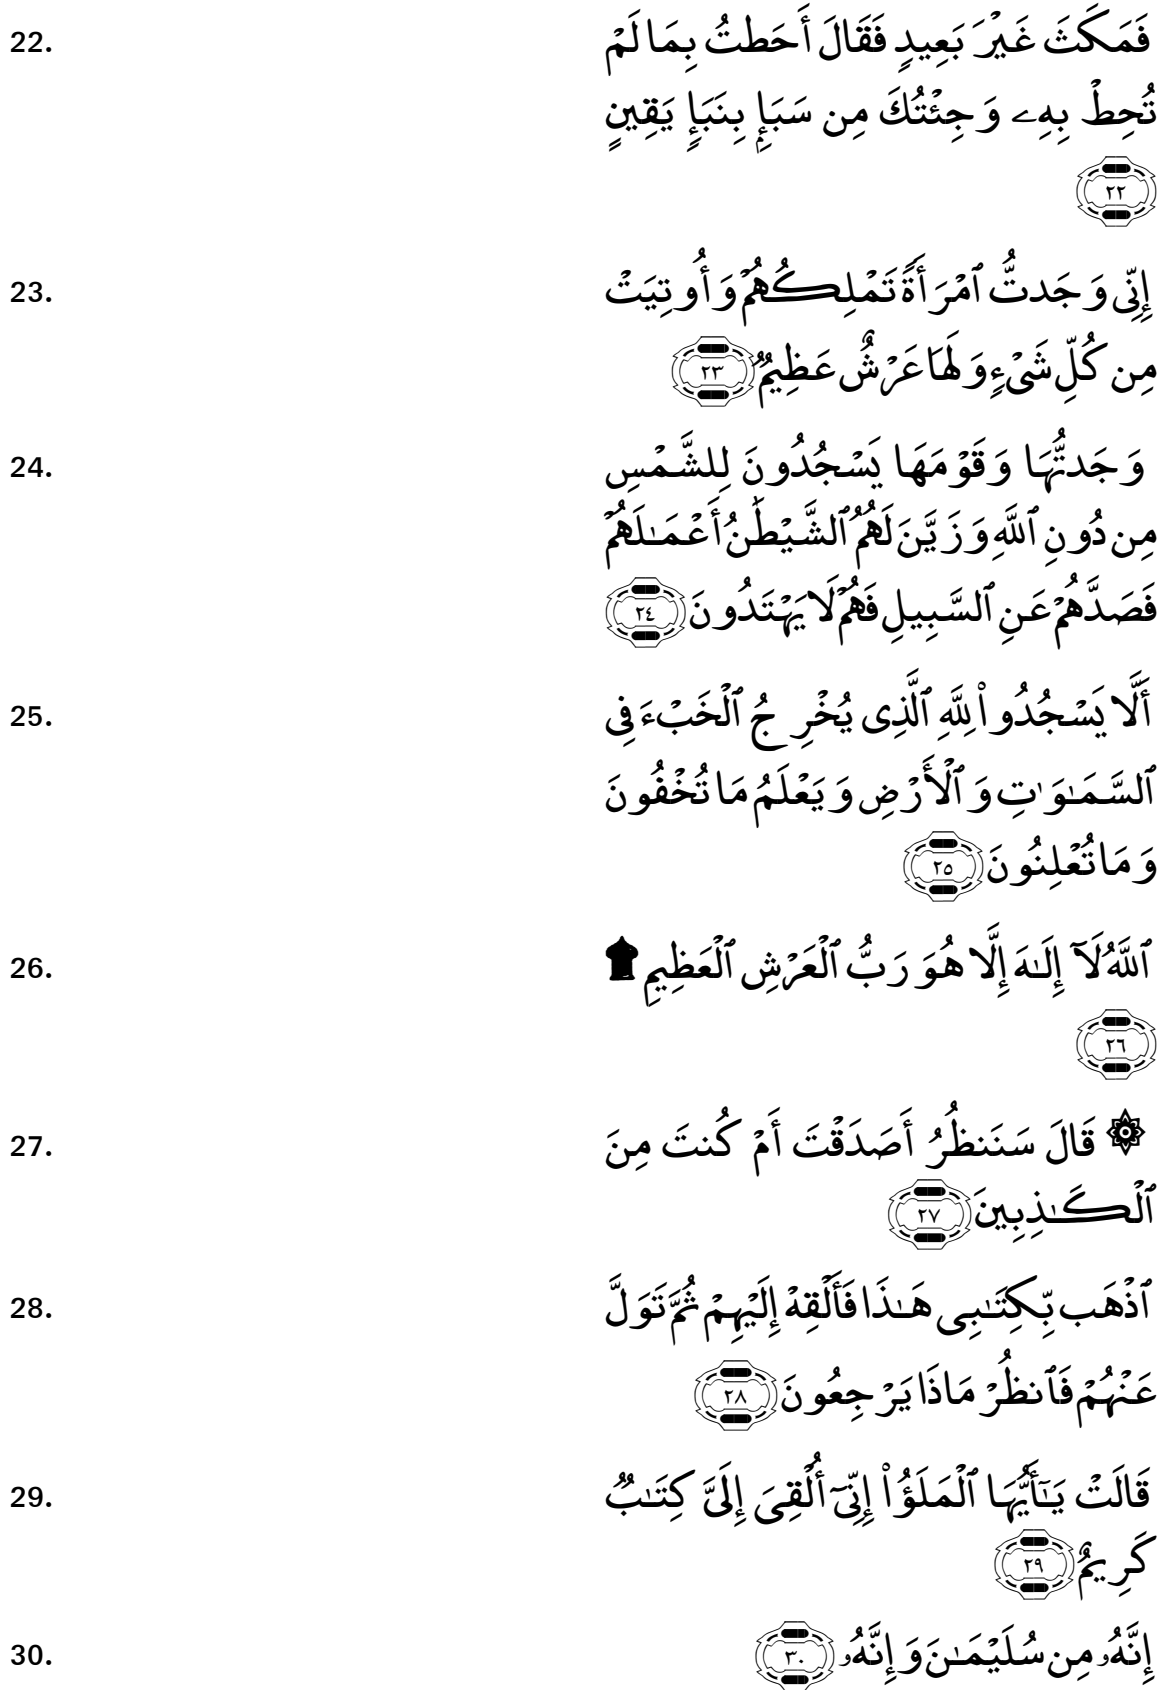 22. فَمَكَثَ غَيْرَ بَعِيدٍ فَقَالَ أَحَطتُ بِمَا لَمْ
تُحِطْ بِهِۦ وَجِئْتُكَ مِن سَبَإٍۭ بِنَبَإٍ يَقِينٍ
٢٢
23. إِنِّى وَجَدتُّ ٱمْرَأَةً تَمْلِكُهُمْ وَأُوتِيَتْ
مِن كُلِّ شَىْءٍ وَلَهَا عَرْشٌ عَظِيمٌ ٢٣
24. وَجَدتُّهَا وَقَوْمَهَا يَسْجُدُونَ لِلشَّمْسِ
مِن دُونِ ٱللَّهِ وَزَيَّنَ لَهُمُ ٱلشَّيْطَٰنُ أَعْمَـٰلَهُمْ
فَصَدَّهُمْ عَنِ ٱلسَّبِيلِ فَهُمْ لَا يَهْتَدُونَ ٢٤
25. أَلَّا يَسْجُدُوا۟ لِلَّهِ ٱلَّذِى يُخْرِجُ ٱلْخَبْءَ فِى
ٱلسَّمَـٰوَٰتِ وَٱلْأَرْضِ وَيَعْلَمُ مَا تُخْفُونَ
وَمَا تُعْلِنُونَ ٢٥
26. ٱللَّهُ لَآ إِلَـٰهَ إِلَّا هُوَ رَبُّ ٱلْعَرْشِ ٱلْعَظِيمِ ۩
٢٦
27. ۞ قَالَ سَنَنظُرُ أَصَدَقْتَ أَمْ كُنتَ مِنَ
ٱلْكَـٰذِبِينَ ٢٧
28. ٱذْهَب بِّكِتَـٰبِى هَـٰذَا فَأَلْقِهْ إِلَيْهِمْ ثُمَّ تَوَلَّ
عَنْهُمْ فَٱنظُرْ مَاذَا يَرْجِعُونَ ٢٨
29. قَالَتْ يَـٰٓأَيُّهَا ٱلْمَلَؤُا۟ إِنِّىٓ أُلْقِىَ إِلَىَّ كِتَـٰبٌ
كَرِيمٌ ٢٩
30. إِنَّهُۥ مِن سُلَيْمَـٰنَ وَإِنَّهُۥ ٣٠